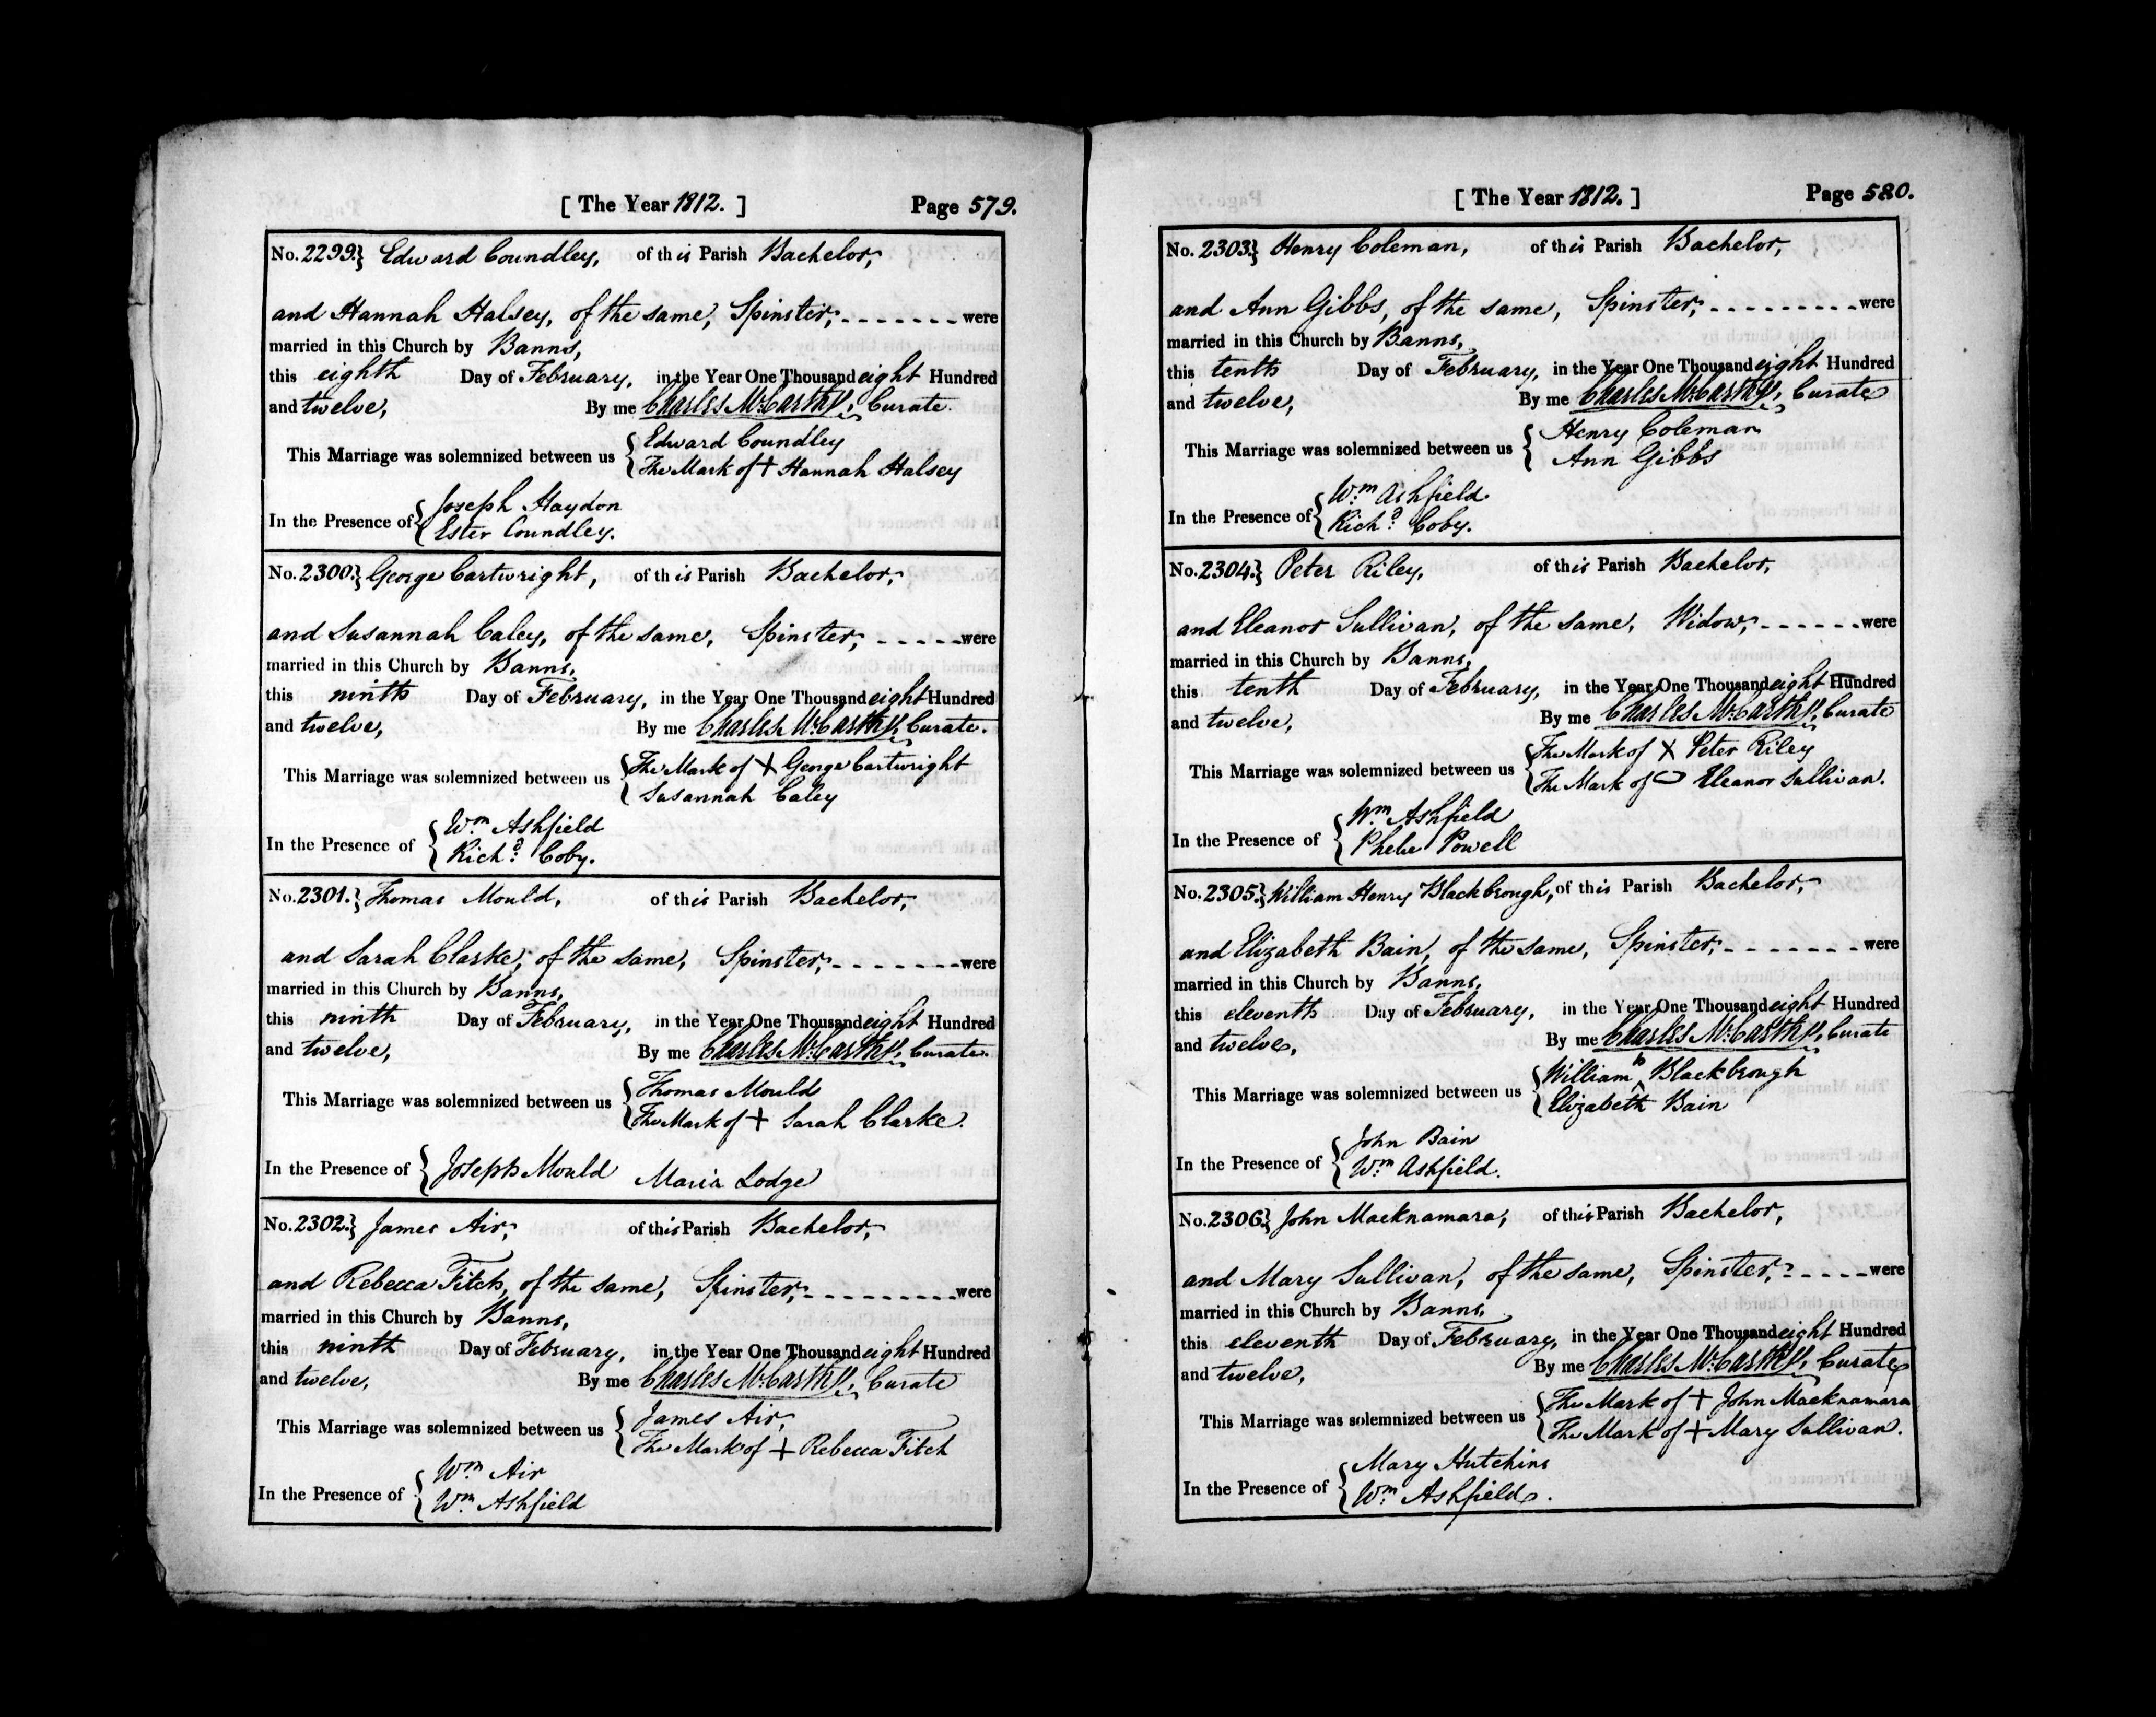 [ The Year 1812. ] Page 579.
No. 2299} Edward Coundley, of this Parish Bachelor,
and Hannah Halsey, of the same, Spinster, were
married in this Church by Banns,
this eighth Day of February, in the Year One Thousand eight Hundred
and twelve, By me Charles McCarthy, Curate.
This Marriage was solemnized between us { Edward Coundley
The Mark of + Hannah Halsey
In the Presence of { Joseph Haydon
Ester Coundley.
No. 2300} George Cartwright, of this Parish Bachelor,
and Susannah Caley, of the same, Spinster, were
married in this Church by Banns,
this ninth Day of February, in the Year One Thousand eight Hundred
and twelve, By me Charles McCarthy, Curate.
This Marriage was solemnized between us { The Mark of X George Cartwright
Susannah Caley
In the Presence of { Wm Ashfield
Richd Coby.
No. 2301.} Thomas Mould, of this Parish Bachelor,
and Sarah Clarke, of the same, Spinster, were
married in this Church by Banns,
this ninth Day of February, in the Year One Thousand eight Hundred
and twelve, By me Charles McCarthy, Curate.
This Marriage was solemnized between us { Thomas Mould
The Mark of + Sarah Clarke.
In the Presence of { Joseph Mould Maria Lodge
No. 2302} James Air, of this Parish Bachelor,
and Rebecca Fitch, of the same, Spinster, were
married in this Church by Banns,
this ninth Day of February, in the Year One Thousand eight Hundred
and twelve, By me Charles McCarthy, Curate
This Marriage was solemnized between us { James Air,
The Mark of + Rebecca Fitch
In the Presence of { Wm Air
Wm Ashfield
[ The Year 1812. ] Page 580.
No. 2303} Henry Coleman, of this Parish Bachelor,
and Ann Gibbs, of the same, Spinster, were
married in this Church by Banns,
this tenth Day of February, in the Year One Thousand eight Hundred
and twelve, By me Charles McCarthy, Curate
This Marriage was solemnized between us { Henry Coleman
Ann Gibbs
In the Presence of { Wm Ashfield
Richd Coby.
No. 2304} Peter Riley, of this Parish Bachelor,
and Eleanor Sullivan, of the same, Widow, were
married in this Church by Banns,
this tenth Day of February, in the Year One Thousand eight Hundred
and twelve, By me Charles McCarthy, Curate
This Marriage was solemnized between us { The Mark of X Peter Riley
The Mark of Eleanor Sullivan.
In the Presence of { Wm Ashfield
Phebe Powell
No. 2305} William Henry Blackbrough, of this Parish Bachelor,
and Elizabeth Bain, of the same, Spinster, were
married in this Church by Banns,
this eleventh Day of February, in the Year One Thousand eight Hundred
and twelve, By me Charles McCarthy, Curate
This Marriage was solemnized between us { William Blackbrough
Elizabeth Bain
In the Presence of { John Bain
Wm Ashfield.
No. 2306} John Macknamara, of this Parish Bachelor,
and Mary Sullivan, of the same, Spinster, were
married in this Church by Banns,
this eleventh Day of February, in the Year One Thousand eight Hundred
and twelve, By me Charles McCarthy, Curate
This Marriage was solemnized between us { The Mark of + John Macknamara
The Mark of + Mary Sullivan.
In the Presence of { Mary Hutchins
Wm Ashfield.